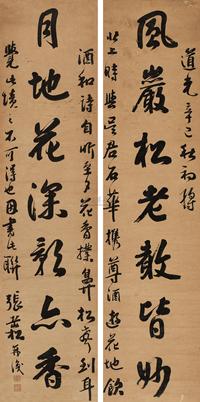 風巖松老聲皆妙
月地花深影亦香
道光辛巳秋初
上時與吳君石華攜尊酒遊花地飲
酒和詩自昕至夕花香撲鼻松到耳
覺此境之不可得也因書此聯
張岳崧識